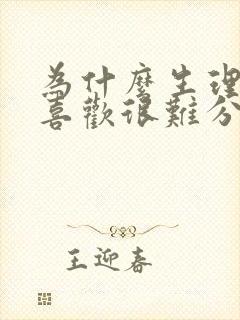 為什麼生理
喜歡很難分
王迎春